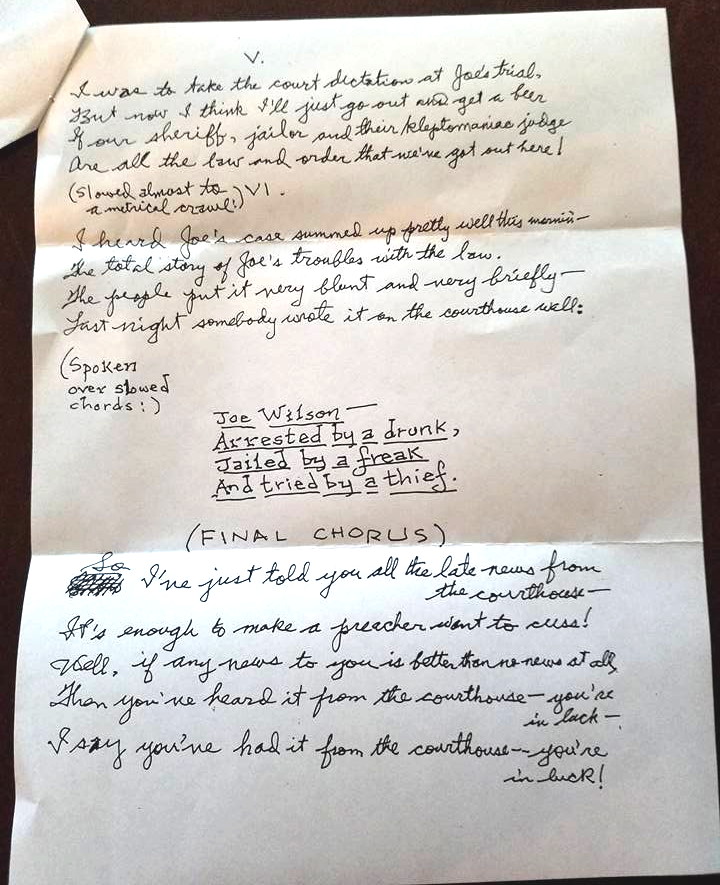 V.
I was to take the court dictation at Joe's trial,
But now I think I'll just go out and get a beer
If our sheriff, jailor and their kleptomaniac judge
Are all the law and order that we've got out here!
(Slowed almost to a metrical crawl:) VI.
I heard Joe's case summed up pretty well this mornin—
The total story of Joe's troubles with the law.
The people put it very blunt and very briefly—
Last night somebody wrote it on the courthouse wall:
(Spoken
over slowed
chords:)
Joe Wilson—
Arrested by a drunk,
Jailed by a freak
And tried by a thief.
(FINAL CHORUS)
So I've just told you all the late news from
the courthouse—
It's enough to make a preacher want to cuss!
Well, if any news to you is better than no news at all,
Then you've heard it from the courthouse—you're
in luck—
I say you've had it from the courthouse—you're
in luck!